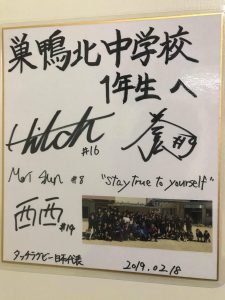 巣鴨北中学校
1年生へ
Hitch #16
#9
Mori Shun #8 "Stay true to yourself"
西西 #14
タッチラグビー日本代表
2019.02.18